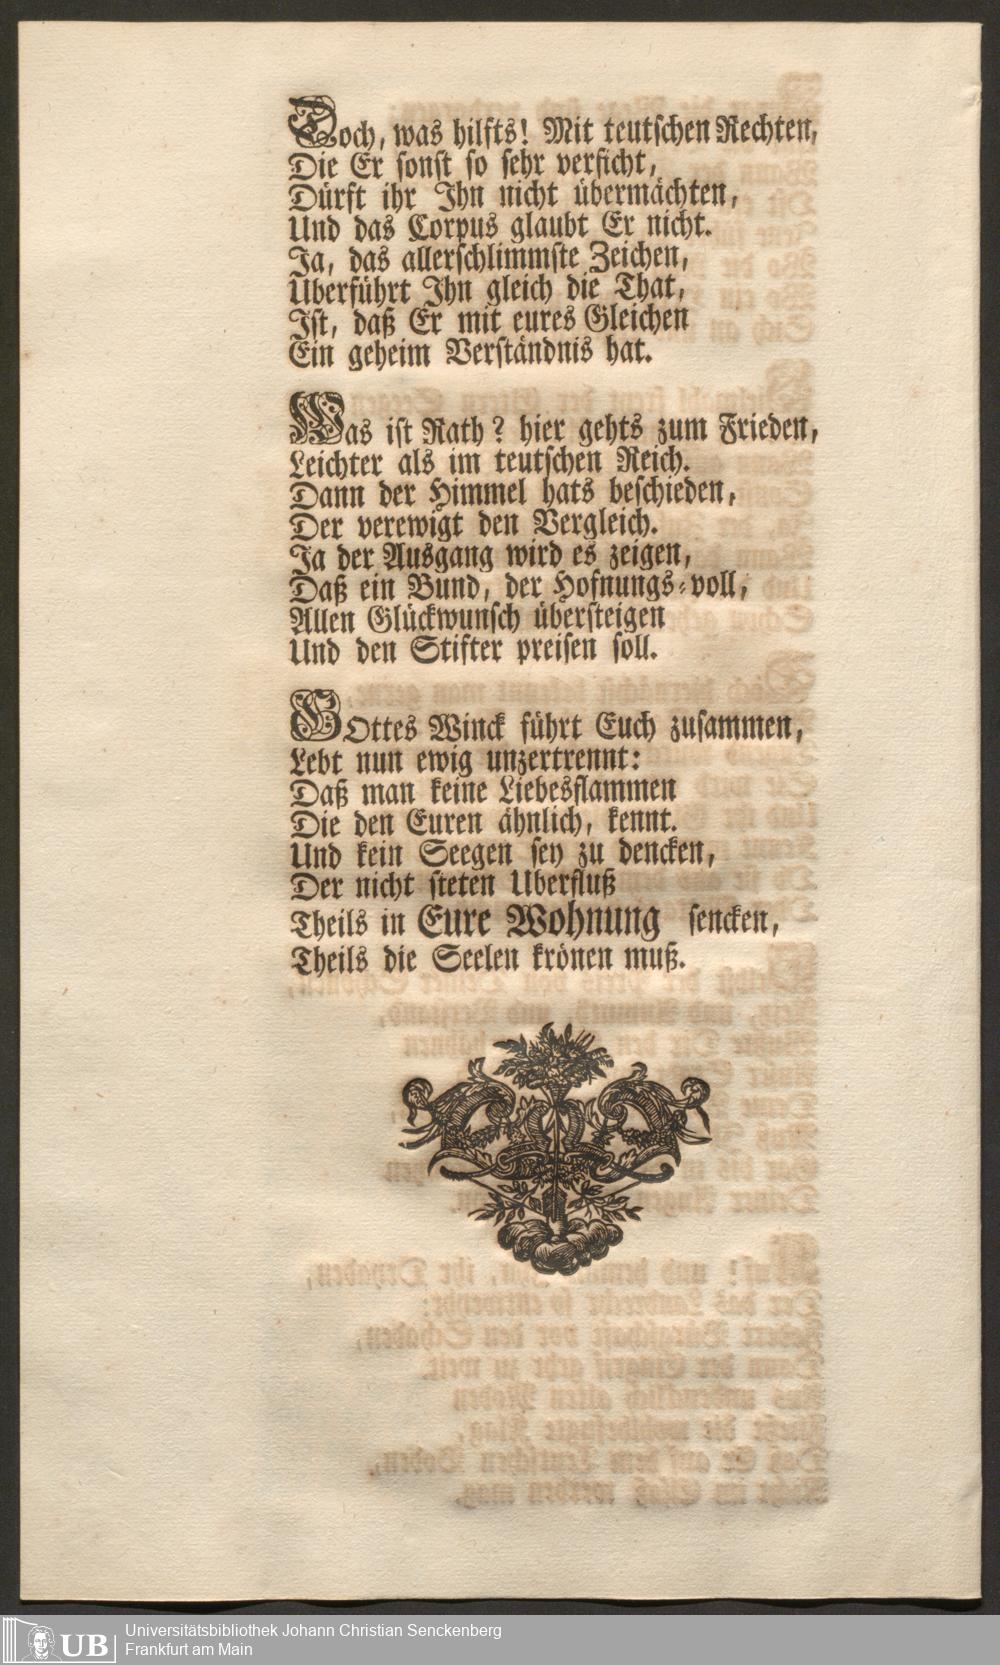 Doch, was hilfts! Mit teutschen Rechten,
Die Er sonst so sehr versicht,
Dürft ihr Ihn nicht übermächten,
Und das Corpus glaubt Er nicht.
Ja, das allerschlimmste Zeichen,
Uberführt Ihn gleich die That,
Ist, daß Er mit eures Gleichen
Ein geheim Verständnis hat.
Was ist Rath? hier gehts zum Frieden,
Leichter als im teutschen Reich.
Dann der Himmel hats beschieden,
Der verewigt den Vergleich.
Ja der Ausgang wird es zeigen,
Daß ein Bund, der Hofnungs-voll,
Allen Glückwunsch übersteigen
Und den Stifter preisen soll.
GOttes Winck führt Euch zusammen,
Lebt nun ewig unzertrennt:
Daß man keine Liebesflammen
Die den Euren ähnlich, kennt.
Und kein Seegen sey zu dencken,
Der nicht steten Uberfluß
Theils in Eure Wohnung sencken,
Theils die Seelen krönen muß.
UB
Universitätsbibliothek Johann Christian Senckenberg
Frankfurt am Main